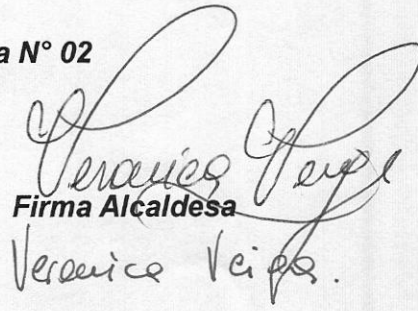 a N° 02
Veronica Veiga
Firma Alcaldesa
Veronica Veiga.